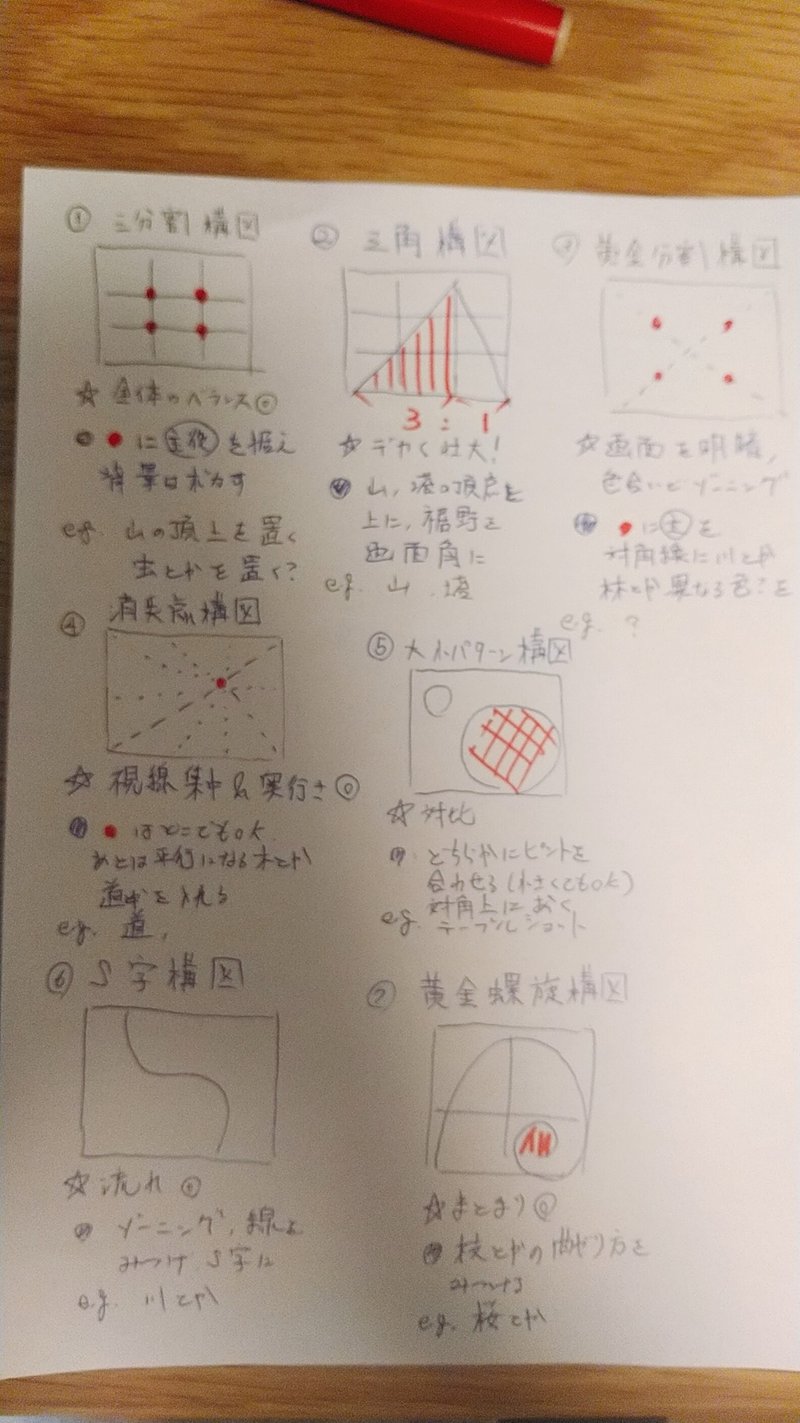 ① 三分割構図
☆ 全体のバランス◎
● に主役を据え
背景はボカす
eg 山の頂上を置く
虫とかを置く?
② 三角構図
3 : 1
☆ デカく壮大!
山,塔の頂点を
上に,裾野を
画面角に
e.g. 山.塔
③ 黄金分割構図
☆ 画面を明暗,
色合いとゾーニング
● に主を
対角線に川とか
林とか異なる色?を
e.g. ?
④ 消失点構図
☆ 視線集中&奥行き◎
● はどこでもok
あとは平行になる木とか
道とかを入れる
e.g. 道,
⑤ 大小パターン構図
☆ 対比
どちらかにピントを
合わせる(小さくてもok)
対角上におく
e.g. テーブルショット
⑥ S字構図
☆ 流れ
ゾーニング,線を
みつけ S字に
e.g. 川とか
⑦ 黄金螺旋構図
☆ まとまり◎
枝とかの曲がり方を
みつける
e.g. 桜とか